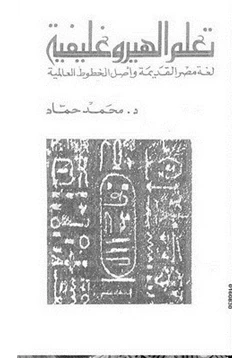 تعلم الهيروغليفية
لغة مصر القديمة وأصل الخطوط العالمية
د. محمد حماد